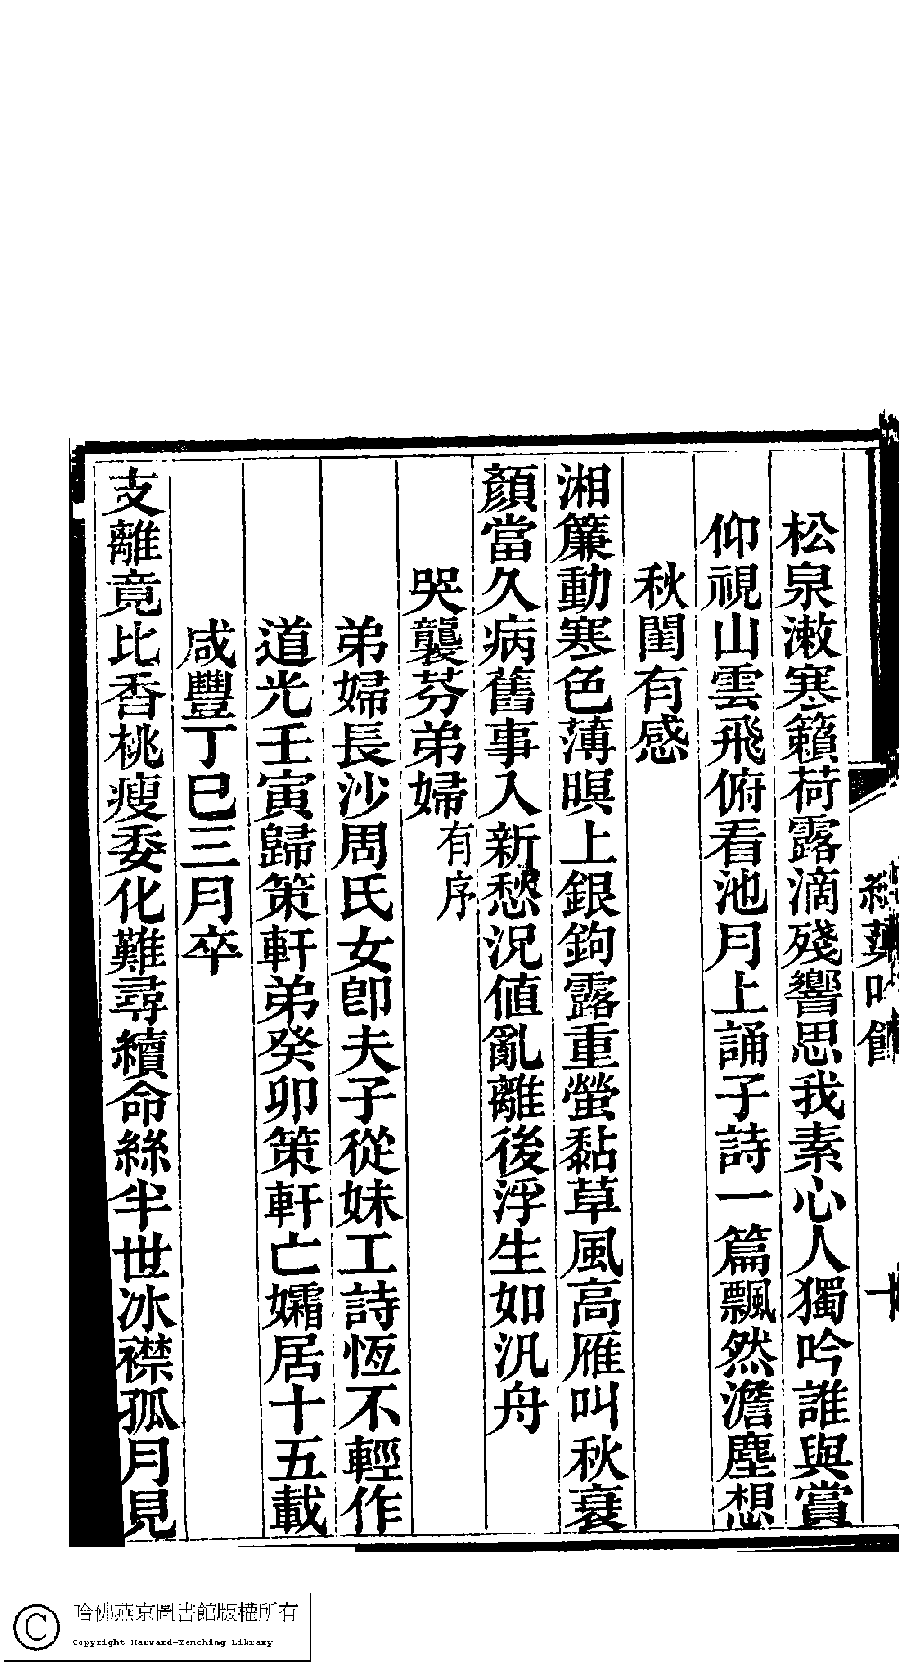 松泉漱寒籟荷露滴殘響思我素心人獨吟誰與賞
仰視山雲飛俯看池月上誦子詩一篇飄然澹塵想
秋閨有感
湘簾動寒色薄暝上銀鉤露重螢黏草風高雁叫秋衰
顏當久病舊事入新愁況値亂離後浮生如汎舟
哭襲芬弟婦有序
弟婦長沙周氏女卽夫子從妹工詩恆不輕作
道光壬寅歸策軒弟癸卯策軒亡孀居十五載
咸豐丁巳三月卒
支離竟比香桃瘦委化難尋續命絲半世冰襟孤月見
哈佛燕京圖書館版權所有
Copyright Harvard-Yenching Library